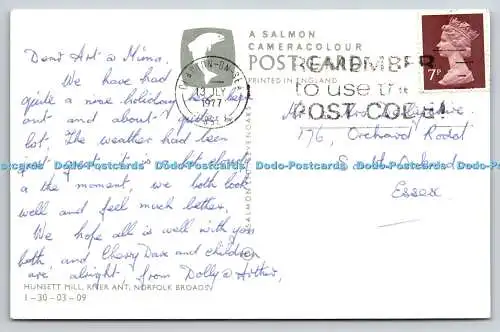 Dear Art & Mina.
We have had
quite a nice holiday, have kept
out and about quite a
lot. The weather had been
good
a the moment, we both look
well and feel much better.
We hope all is well with you
both and Cherry Dave and children
are alright from Dolly & Arthur.
HUNSETT MILL, RIVER ANT, NORFOLK BROADS
1-30-03-09
A SALMON
CAMERACOLOUR
POSTCARD
PRINTED IN ENGLAND
CLACTON-ON-SEA
13 JLY
1977
ESSEX
REMEMBER
to use the
POST CODE!
7P
176, Orchard Road
Essex
Dodo-Postcards Dodo-Postcards Dodo-Postcards Dodo-Postcards Dodo-Postcards